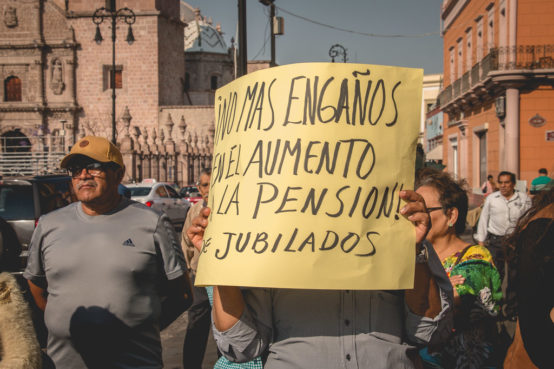 ¡NO MAS ENGAÑOS
EN EL AUMENTO
A LA PENSION!
DE JUBILADOS
adidas